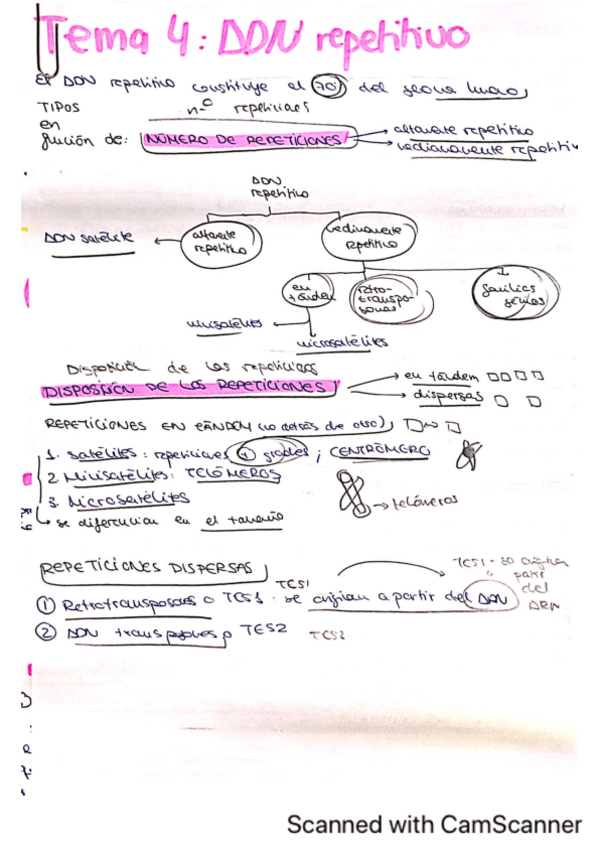 Tema 4: ADN repetitivo
El ADN repetitivo constituye el 70% del genoma humano
TIPOS nº repeticiones
en
función de: NÚMERO DE REPETICIONES → altamente repetitivo
→ medianamente repetitivo
ADN
repetitivo
ADN satélite ← altamente repetitivo
medianamente repetitivo
en tándem
retro-transpo-sones
familias génicas
minisatélites
microsatélites
Disposición de las repeticiones
DISPOSICIÓN DE LAS REPETICIONES → en tándem
→ dispersas
REPETICIONES EN TÁNDEM (uno detrás de otro)
1. Satélites: repeticiones + grandes; CENTRÓMERO
2. Minisatélites: TELÓMEROS
3. Microsatélites → telómeros
se diferencian en el tamaño
REPETICIONES DISPERSAS
TES1 - se origina
a partir
del
ARN
TES1
① Retrotransposones o TES1: se originan a partir del ADN
② ADN transposones o TES2 TES2
Scanned with CamScanner